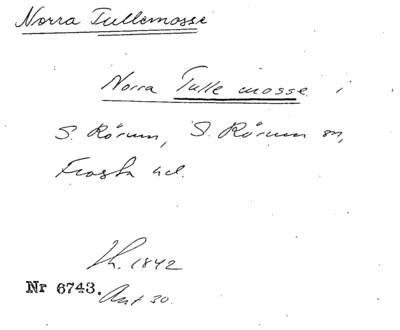 Norra Tullemosse
Norra Tulle mosse i
S. Rörum, S. Rörum sn,
Frosta hd.
Lh. 1842
Nr 6743. Ant 30.